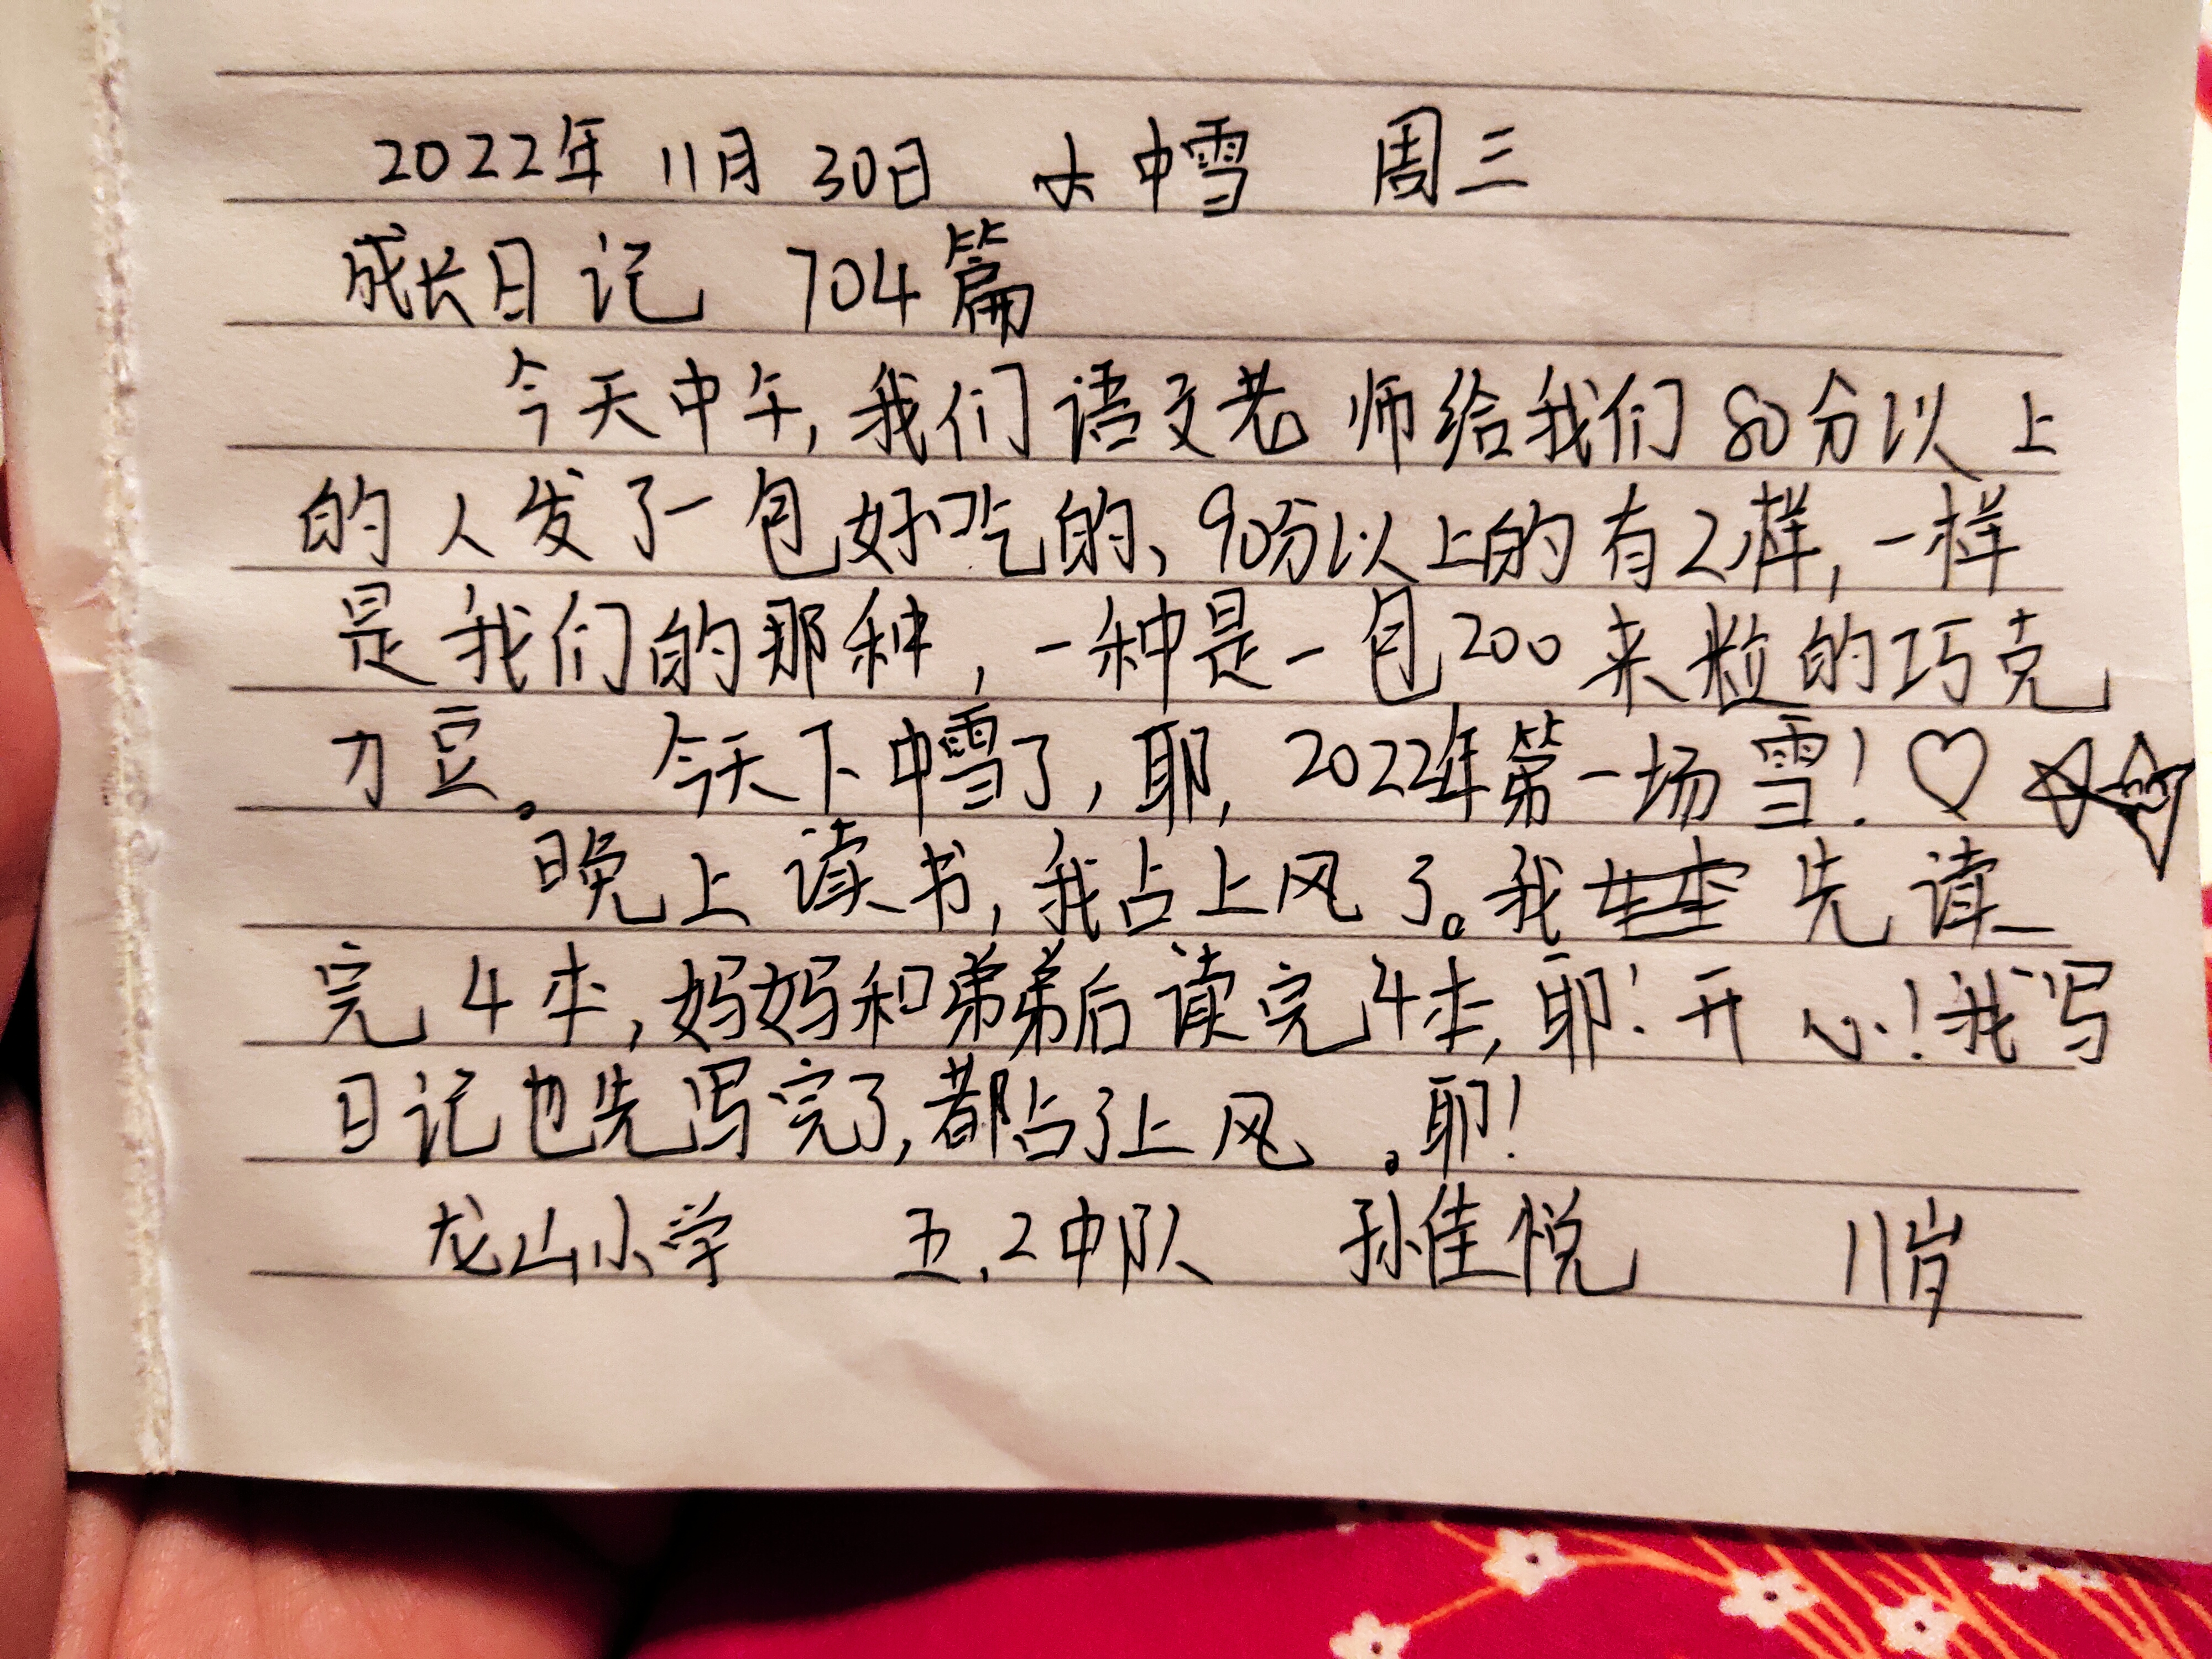 2022年 11月 30日 大中雪 周三
成长日记 704篇
今天中午,我们语文老师给我们80分以上
的人发了一包好吃的、90分以上的有2样,一样
是我们的那种,一种是一包200来粒的巧克
力豆。 今天下中雪了,耶,2022年第一场雪!♡☆☆
晚上读书,我占上风了。我 先读
完4本,妈妈和弟弟后读完4本,耶!开心!我写
日记也先写完了,都占了上风。耶!
龙山小学 五.2中队 孙佳悦 11岁